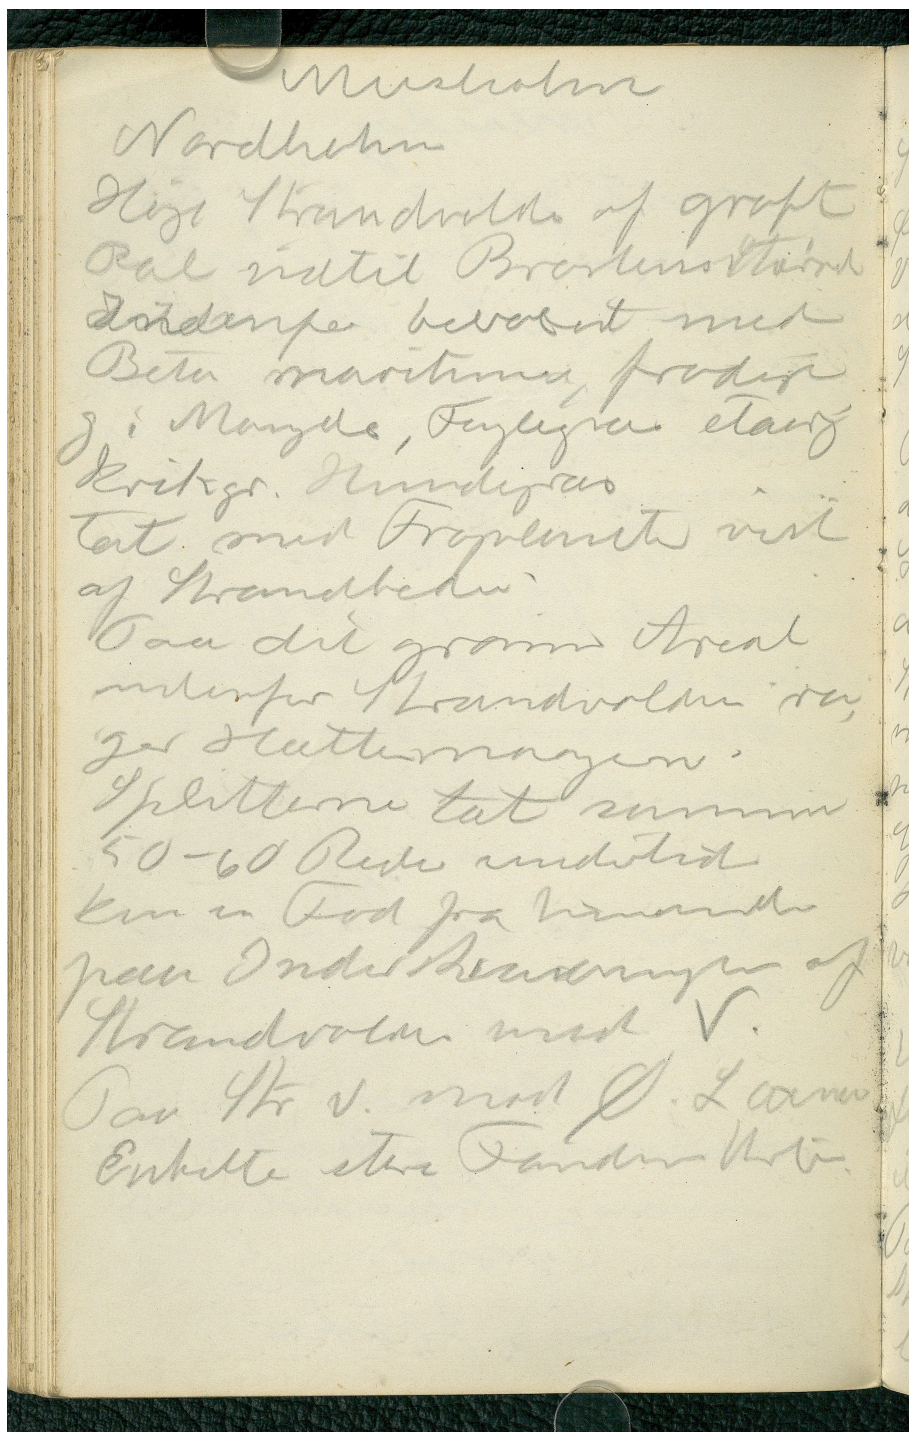 Musholm
Nordholm
Høje Strandvolde af groft
Ral indtil Brostensstørrelse
Indenfor bevokset med
Beta maritima, frodig
g i Mængde, Fuglegræs
Kvikgr. Hundegræs
tat med Frøplanter
af Strandbeden
Paa det grønne Areal
indenfor Strandvolden ru,
ger Hættemaagen.
Splitterne tæt sammen
50-60 Rede undertid
kun en Fod fra hinanden
paa Inderskraaningen af
Strandvolden mod V.
Paa Str v. mod Ø.
Enkelte store